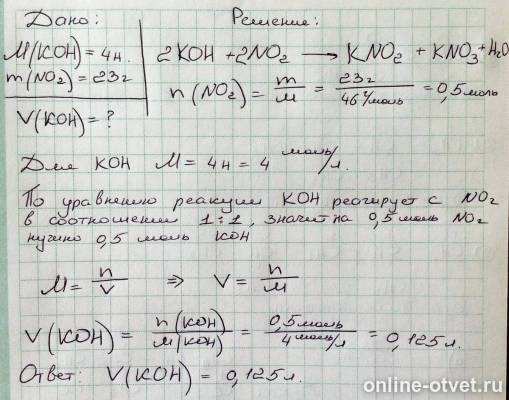 Дано:
M(KOH) = 4н.
m(NO₂) = 23г
V(KOH) = ?
Решение:
2KOH + 2NO₂ → KNO₂ + KNO₃ + H₂O
n(NO₂) = m/M = 23г/46 г/моль = 0,5 моль
Для KOH M = 4н = 4 моль/л.
По уравнению реакции KOH реагирует с NO₂
в соотношении 1:1, значит на 0,5 моль NO₂
нужно 0,5 моль KOH
M = n/V ⇒ V = n/M
V(KOH) = n(KOH)/M(KOH) = 0,5 моль/4 моль/л = 0,125 л.
Ответ: V(KOH) = 0,125 л.
online-otvet.ru